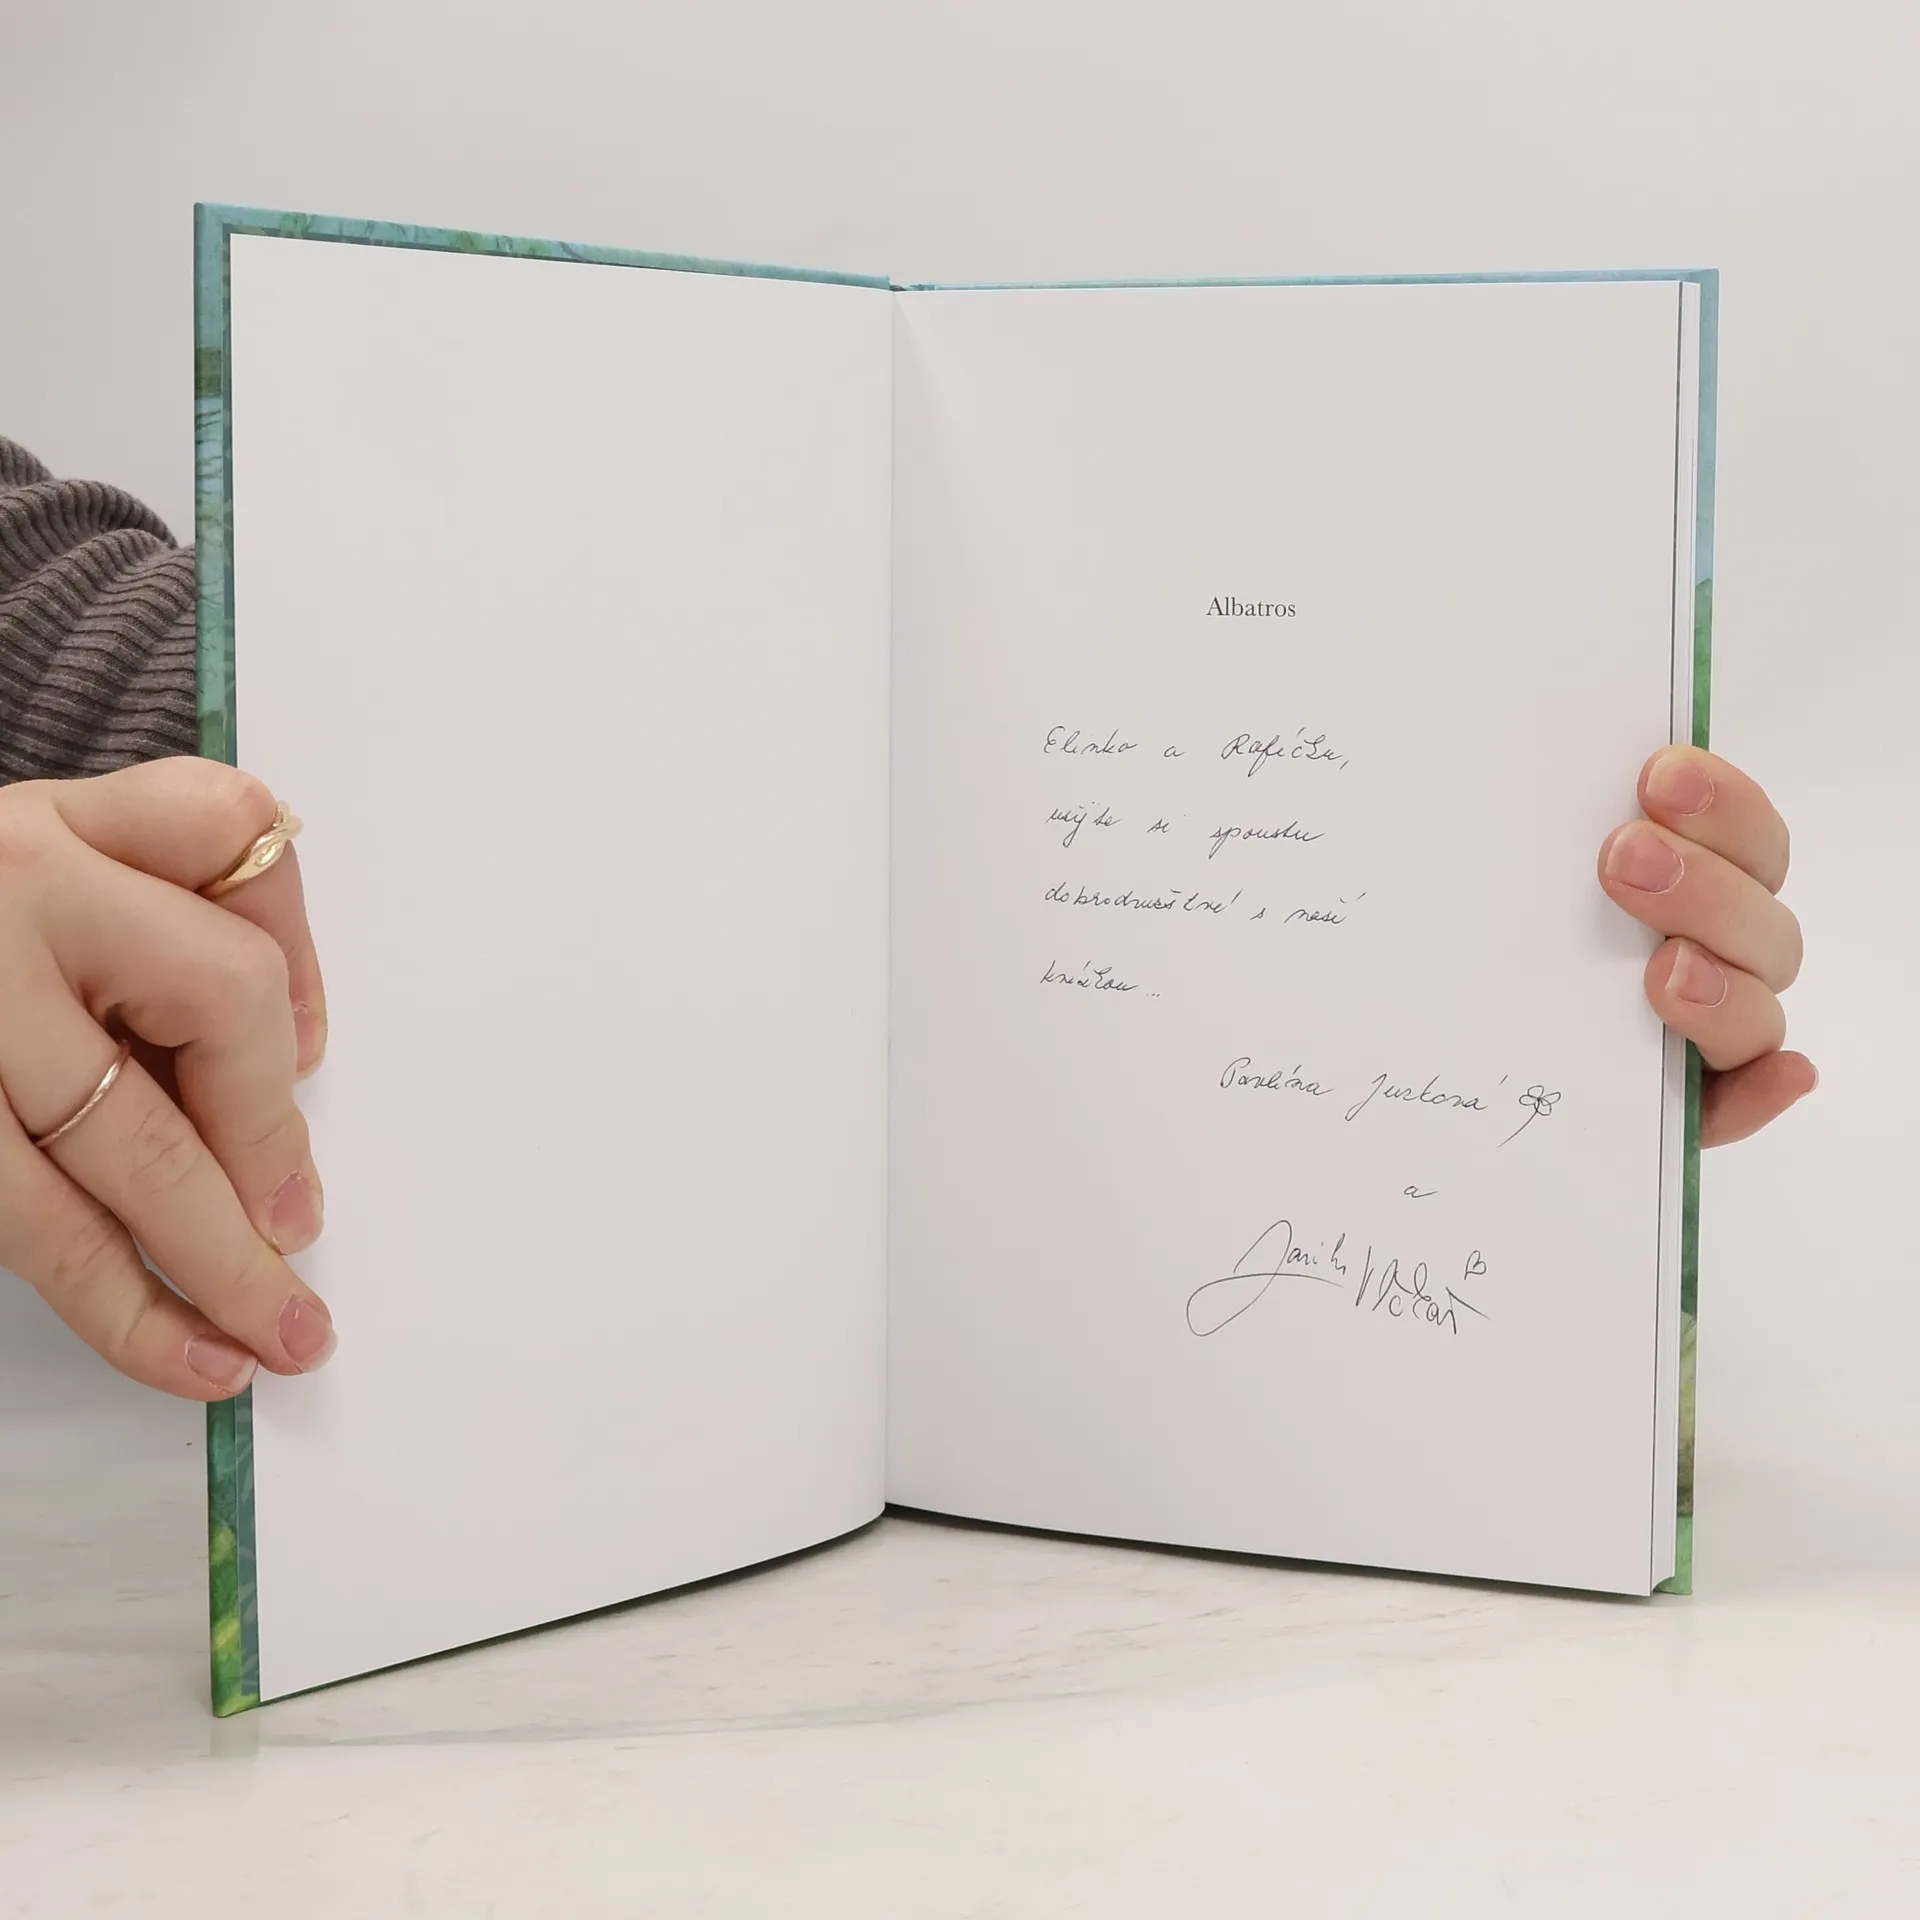 Albatros
Elinko a Rafíčku,
užijte si spoustu
dobrodružství s naší
knížkou...
Pavlína Jurková
a